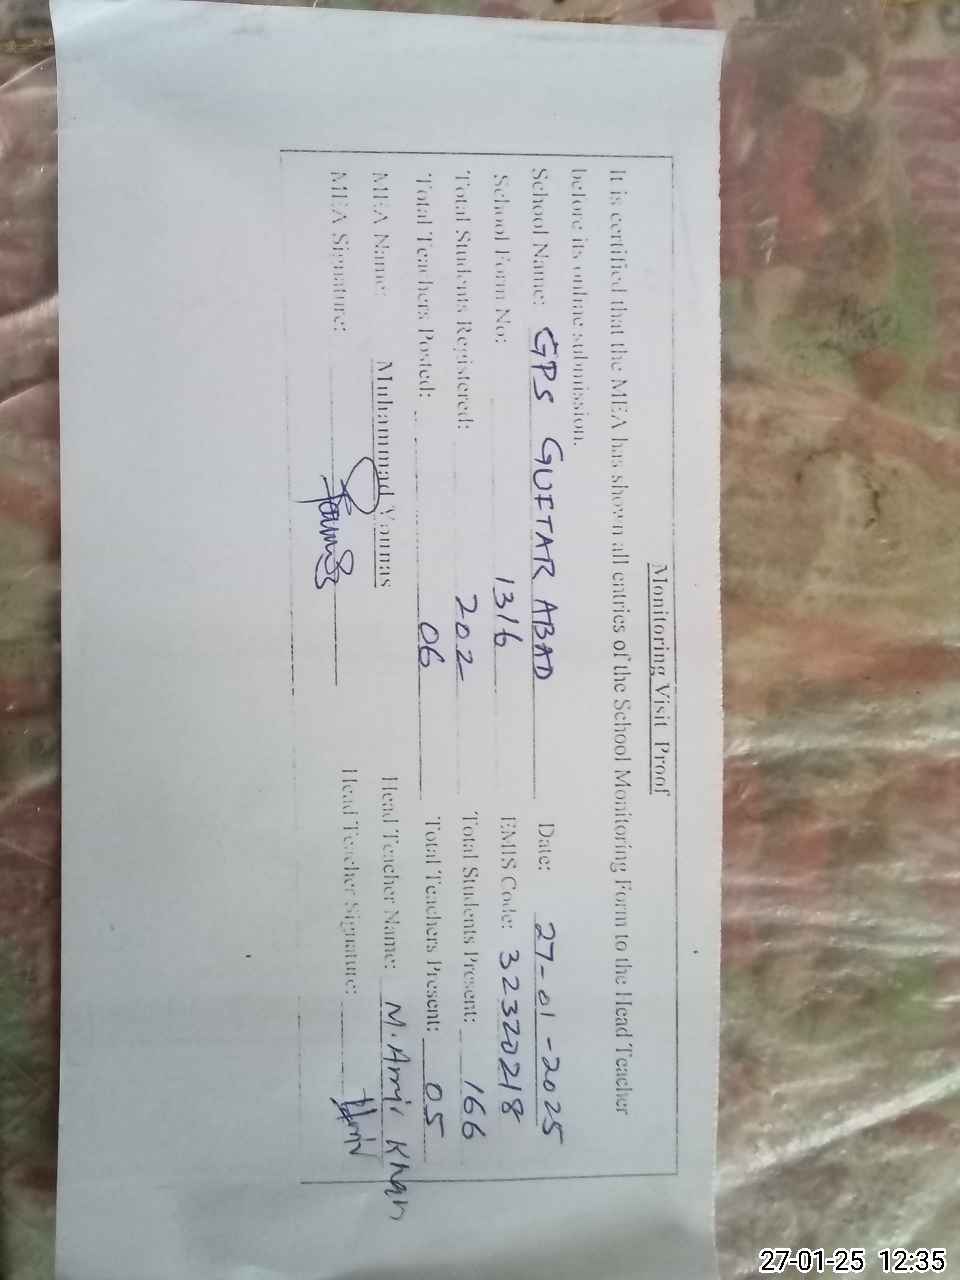 Monitoring Visit Proof
It is certified that the MEA has shown all entries of the School Monitoring Form to the Head Teacher
before its online submission.
School Name: GPS GUFTAR ABAD Date: 27-01-2025
School Form No: 1316 EMIS Code: 32320218
Total Students Registered: 202 Total Students Present: 166
Total Teachers Posted: 06 Total Teachers Present: 05
MEA Name: Muhammad Younas Head Teacher Name: M. Amir Khan
MEA Signature: Head Teacher Signature:
27-01-25 12:35